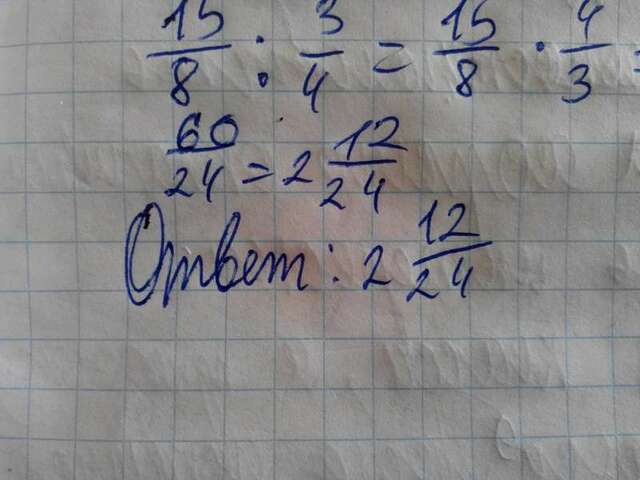 15/8 : 3/4 = 15/8 · 4/3 =
60/24 = 2 12/24
Ответ: 2 12/24